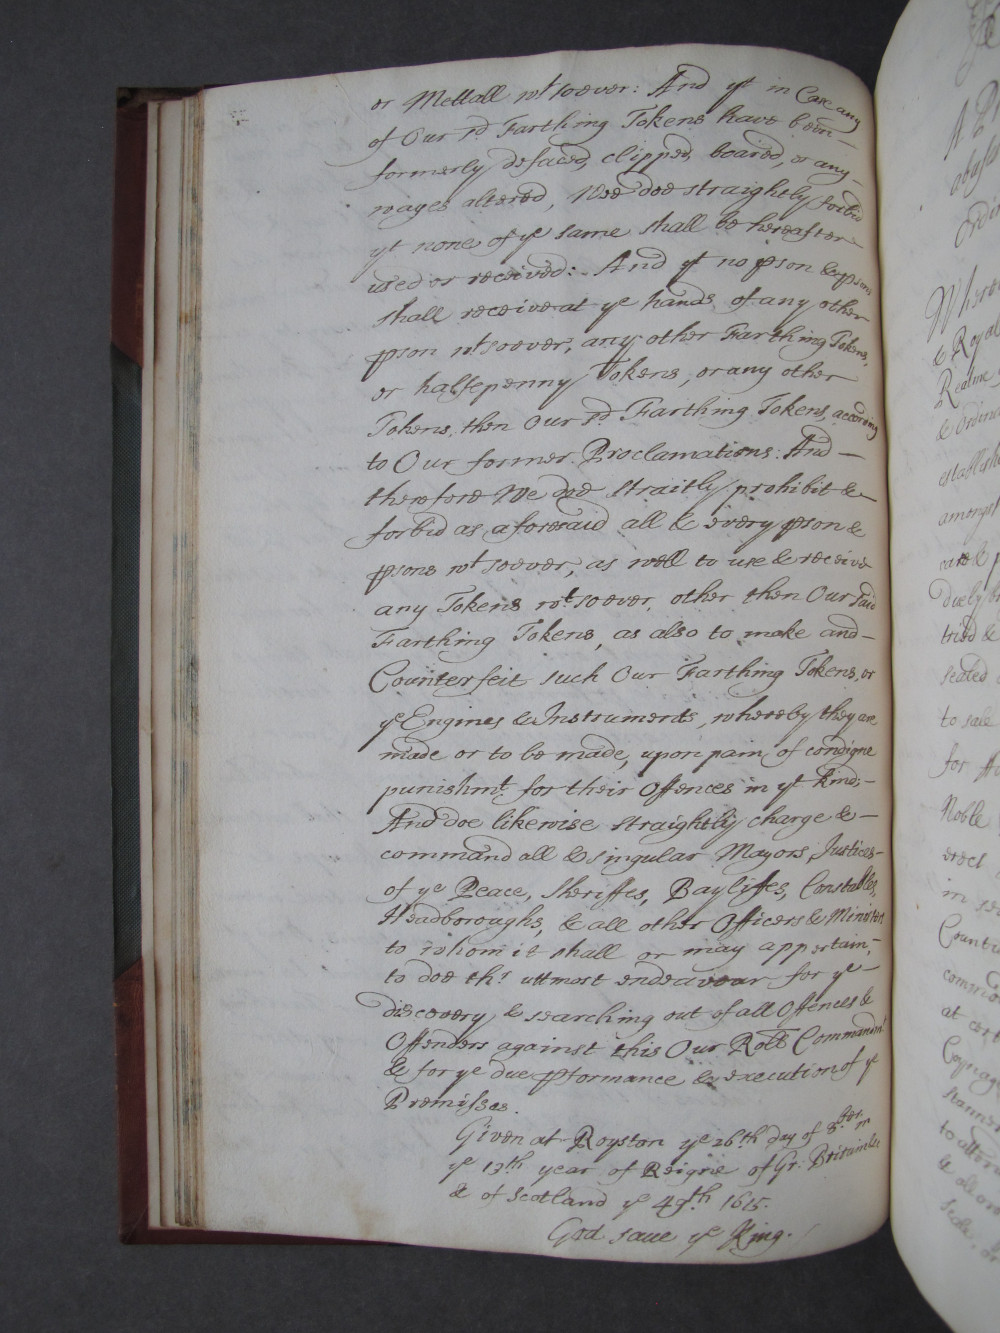 or Mettall wt soever: And yt in Case any
of Our sd Farthing Tokens have been
formerly defaced, clipped, boared, or any
wages altered, Wee doe straightly forbid
yt none of ye same shall be hereafter
used or received: And yt no pson & psons
shall receive at ye hands of any other
pson wt soever, any other Farthing Tokens,
or halfepenny Tokens, or any other
Tokens, then Our sd Farthing Tokens, according
to Our former Proclamations: And
therefore We doe straitly prohibit &
forbid as aforesaid all & every pson &
psons wt soever, as well to use & receive
any Tokens wt soever, other then Our said
Farthing Tokens, as also to make and
Counterfeit such Our Farthing Tokens, or
ye Engines & Instruments, whereby they are
made or to be made, upon pain of condigne
punishmt for their Offences in yt kind;
And doe likewise straightly charge &
command all & singular Mayors, Justices
of ye Peace, Sheriffes, Bayliffes, Constables,
Headboroughs, & all other Officers & Ministers
to whom it shall or may appertain,
to doe thr uttmost endeavour for ye
discovery & searching out of all Offences &
Offenders against this Our Roll Commandmt
& for ye due pformance & execution of ye
Premisses.
Given at Royston ye 26th day of 8ber in
ye 13th year of Reigne of Gr: Britain &c
& of Scotland ye 49th. 1615.
God save ye King.
Realme
establish
amongst
duely
tried &
sealed
to sale
for
Noble
erect
in
Countie
at
Coynage
to
& all